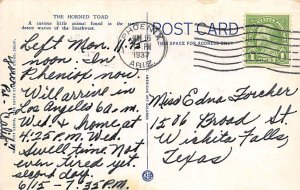 THE HORNED TOAD
A curious little animal found in the
desert wastes of the Southwest.
POST CARD
THIS SPACE FOR ADDRESS ONLY
PHOENIX
1937
ARIZ.
Left Mon. 11:45
noon. In
Pheniox now.
Will arrive in
Los Angeles 6 a.m.
Wed. & home at
4:25 P.M. Wed.
Swell time. Not
even tired yet
second day.
6/15 - 7:35 P.M.
Miss Edna Forcher
1506 Broad St.
Wichita Falls,
Texas